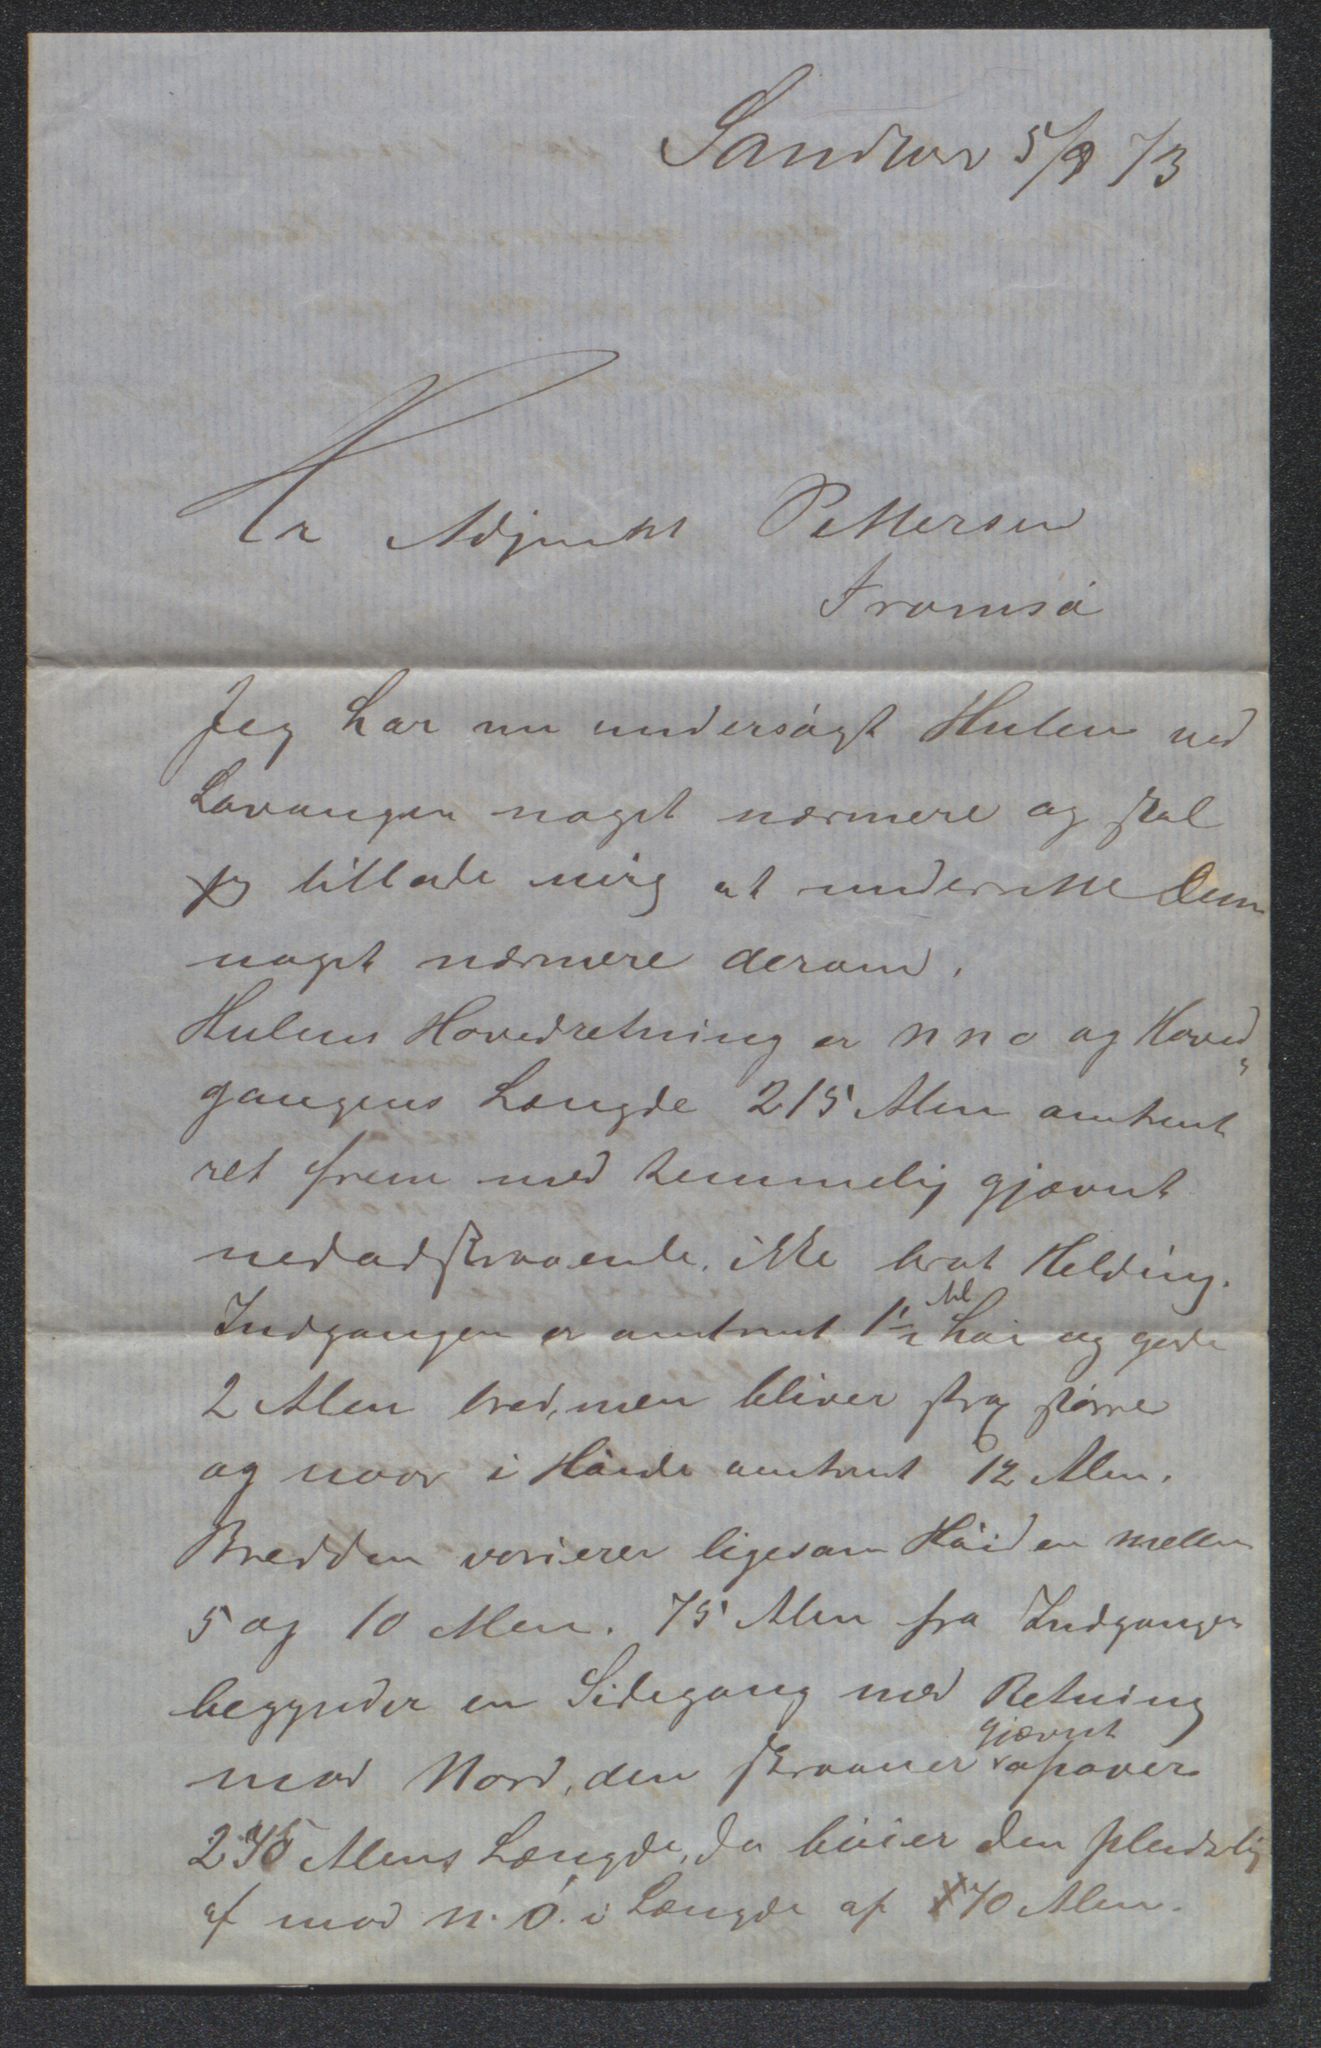 Sandtorv 5/9 73
Hr Adjunkt Pettersen
Tromsö
Jeg har nu undersögt Hulen ved
Lavangen noget nærmere og skal
jeg tillade mig at underrette Dem
noget nærmere derom.
Hulens Hovedretning er n n o og Hoved-
gangens Længde 215 Alen omtrent
ret frem med temmelig gjævnt
nedadskraaende, ikke brat Helding.
Indgangen er omtrent 1½ Al höi og gode
2 Alen bred, men bliver strax större
og naar i Höide omtrent 12 Alen.
Bredden varierer ligesom Höiden mellem
5 og 10 Alen. 75 Alen fra Indgangen
begynder en Sidegang med Retning
mod Nord, den skraaner gjævnt opover
Alens Længde, da böier den pludslig
af mod N. Ö. i Længde af 70 Alen.